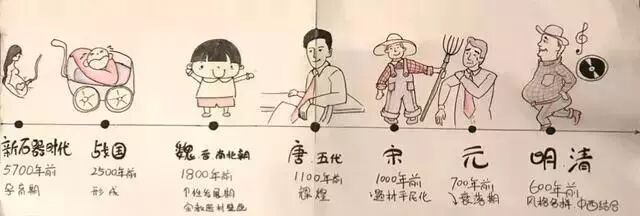 新石器时代
5700年前
孕育期
战国
2500年前
形成
魏.晋.南北朝
1800年前
个性发展期
唐.五代
1100年前
辉煌
宋
1000年前
题材平民化
元
700年前
衰落期
明.清
600年前
风格多样,中西结合